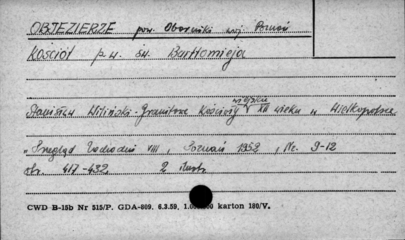 OBJEZIERZE pow. Oborniki woj. Poznań
Kościół p.w. św. Bartłomieja
wiejskie
Stanisław Wiliński - Granitowe Kościoły XII wieku w Wielkopolsce
"Przegląd Zachodni VIII, Poznań 1952, Nr. 9-12
str. 417-432 2 ilustr.
CWD B-15b Nr 515/P. GDA-809. 6.3.59, karton 180/V.